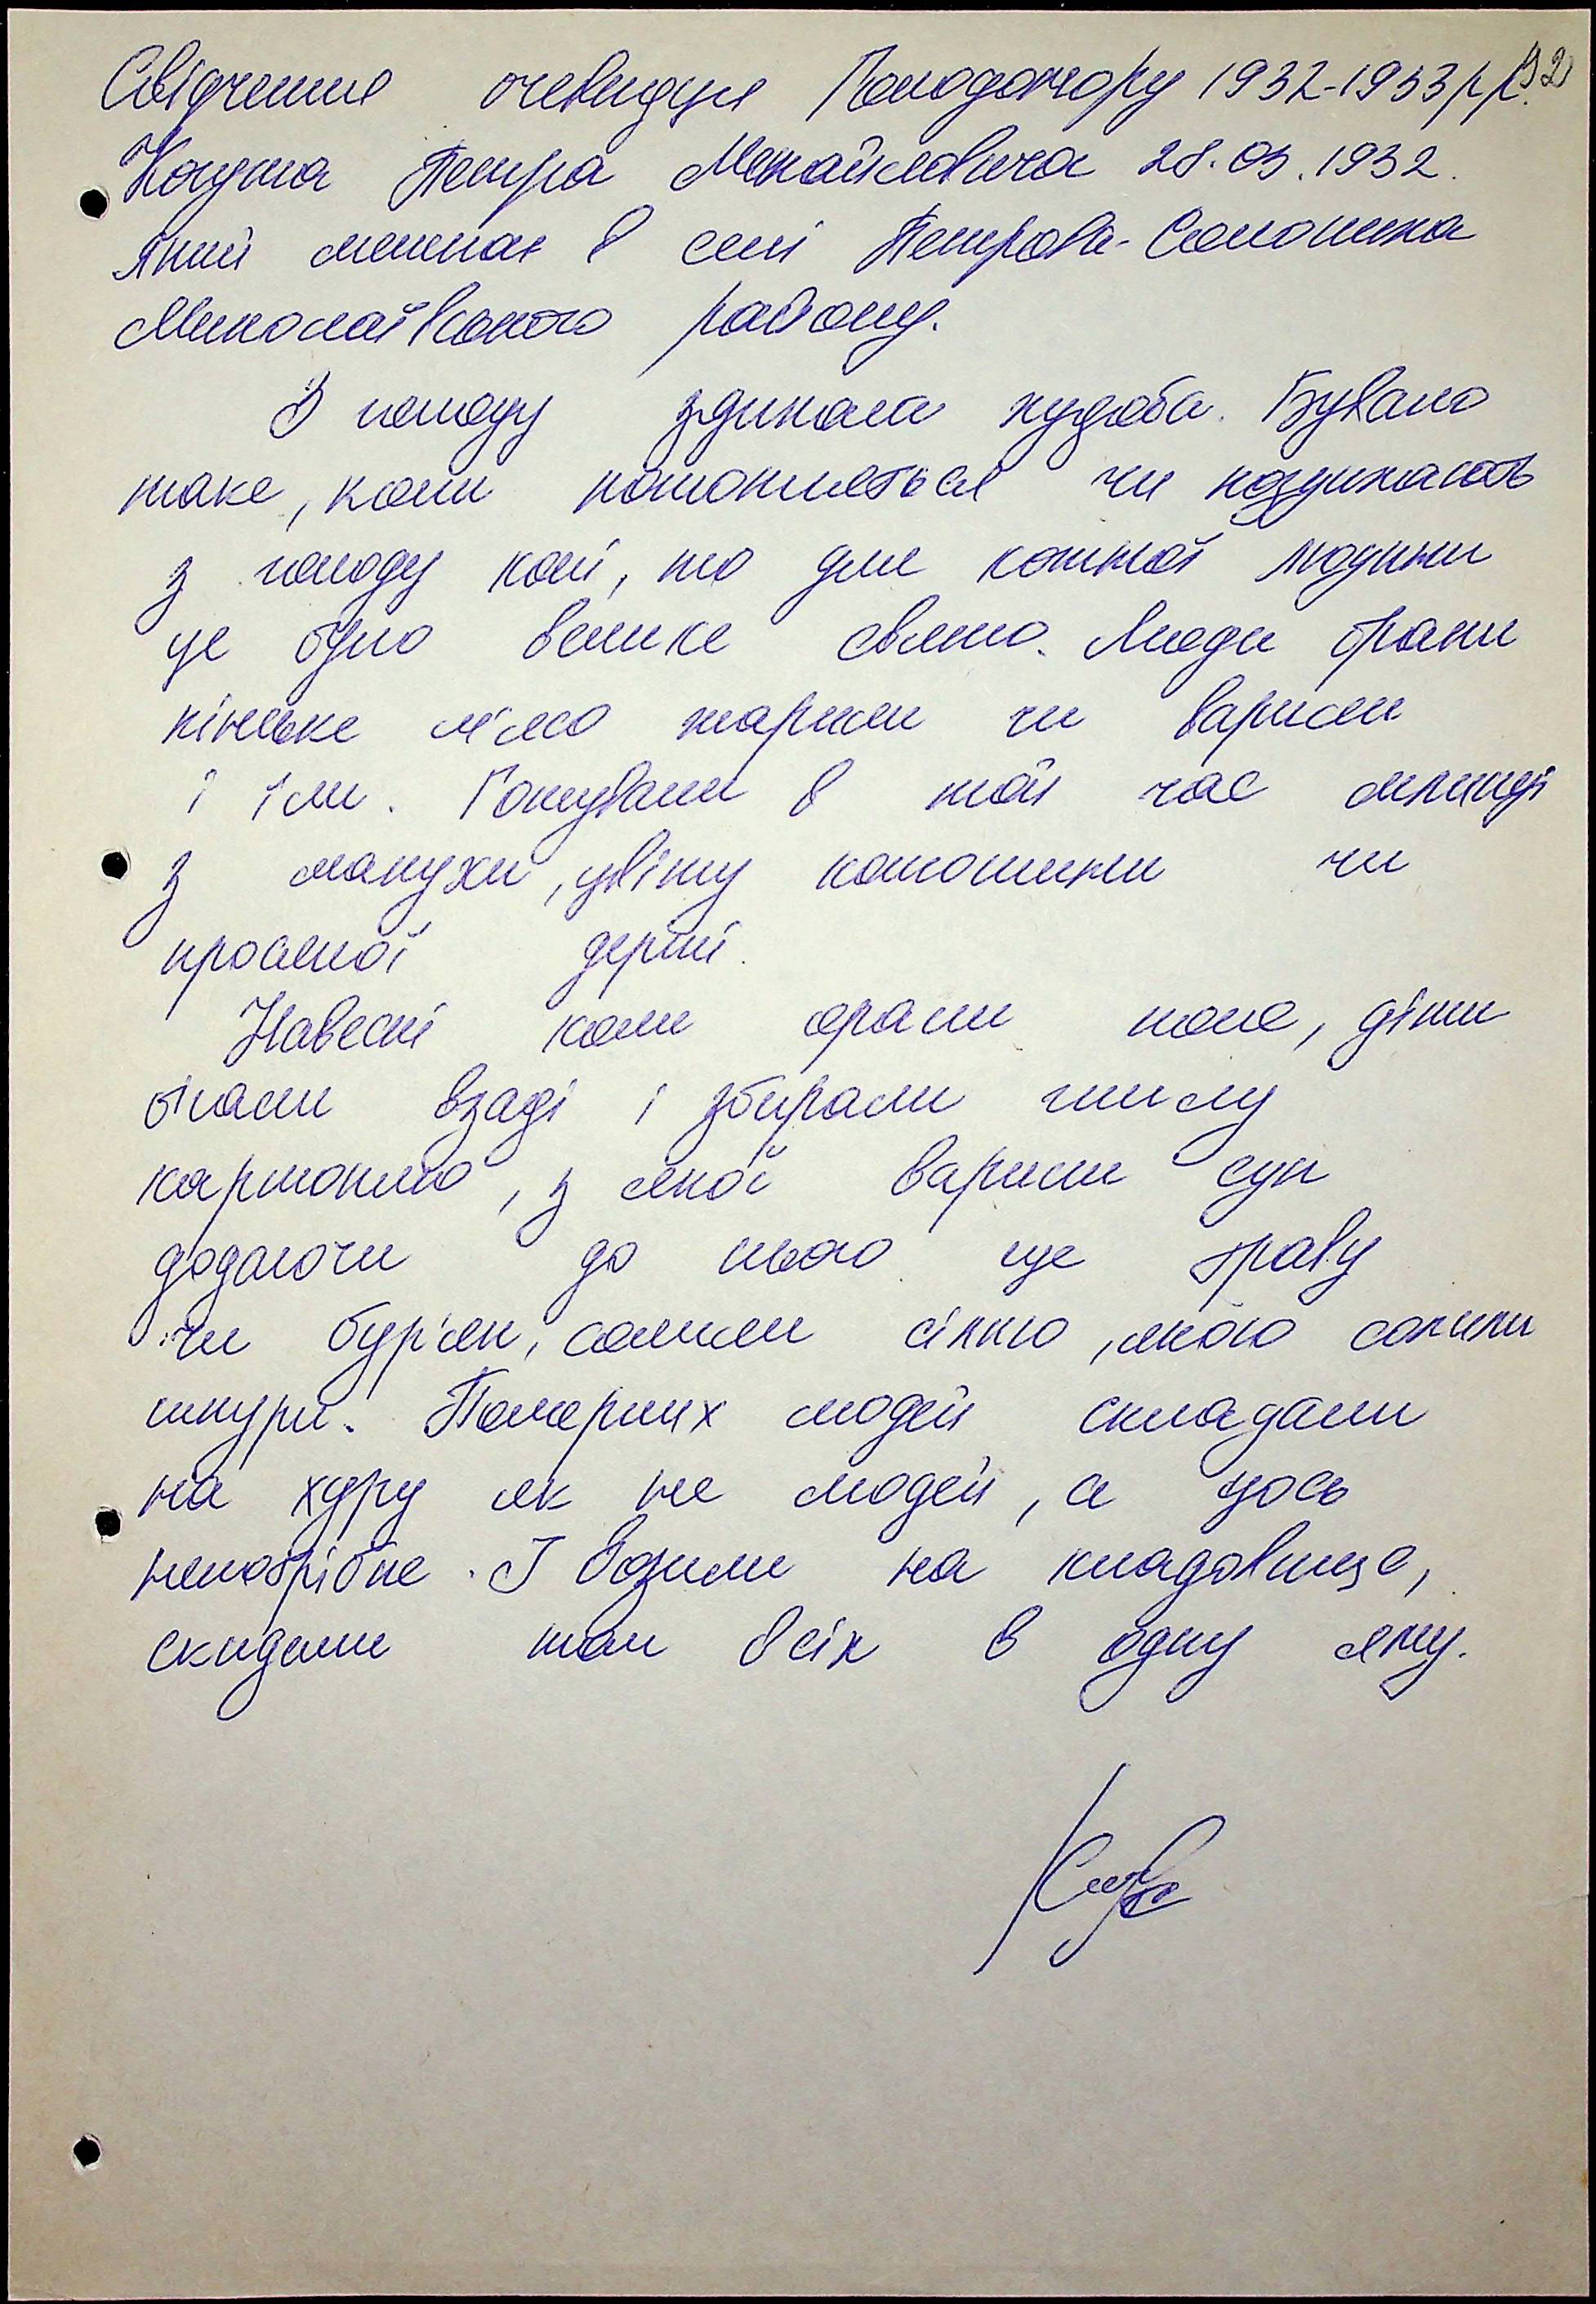 Свідчення очевидця Голодомору 1932-1933 р.р. 92
Петра Михайловича 28.03.1932.
який мешкає в селі Петрово-Солониха
Миколаївського району.
З голоду здихала худоба. Бувало
таке, коли потопляється чи поздихають
з голоду коні, то для кожної людини
це було велике свято. Люди брали
кінське м'ясо жарили чи варили
і їли. Готували в той час млинці
з макухи, цвіту конюшини чи
просяної дерті.
Навесні коли орали поле, діти
бігали взаді і збирали гнилу
картоплю, з якої варили суп
додаючи до нього ще траву
чи бур'ян, солили сіллю, якою солили
шкури. Померших людей складали
на хуру як не людей, а щось
непотрібне. І возили на кладовище,
скидали там всіх в одну яму.